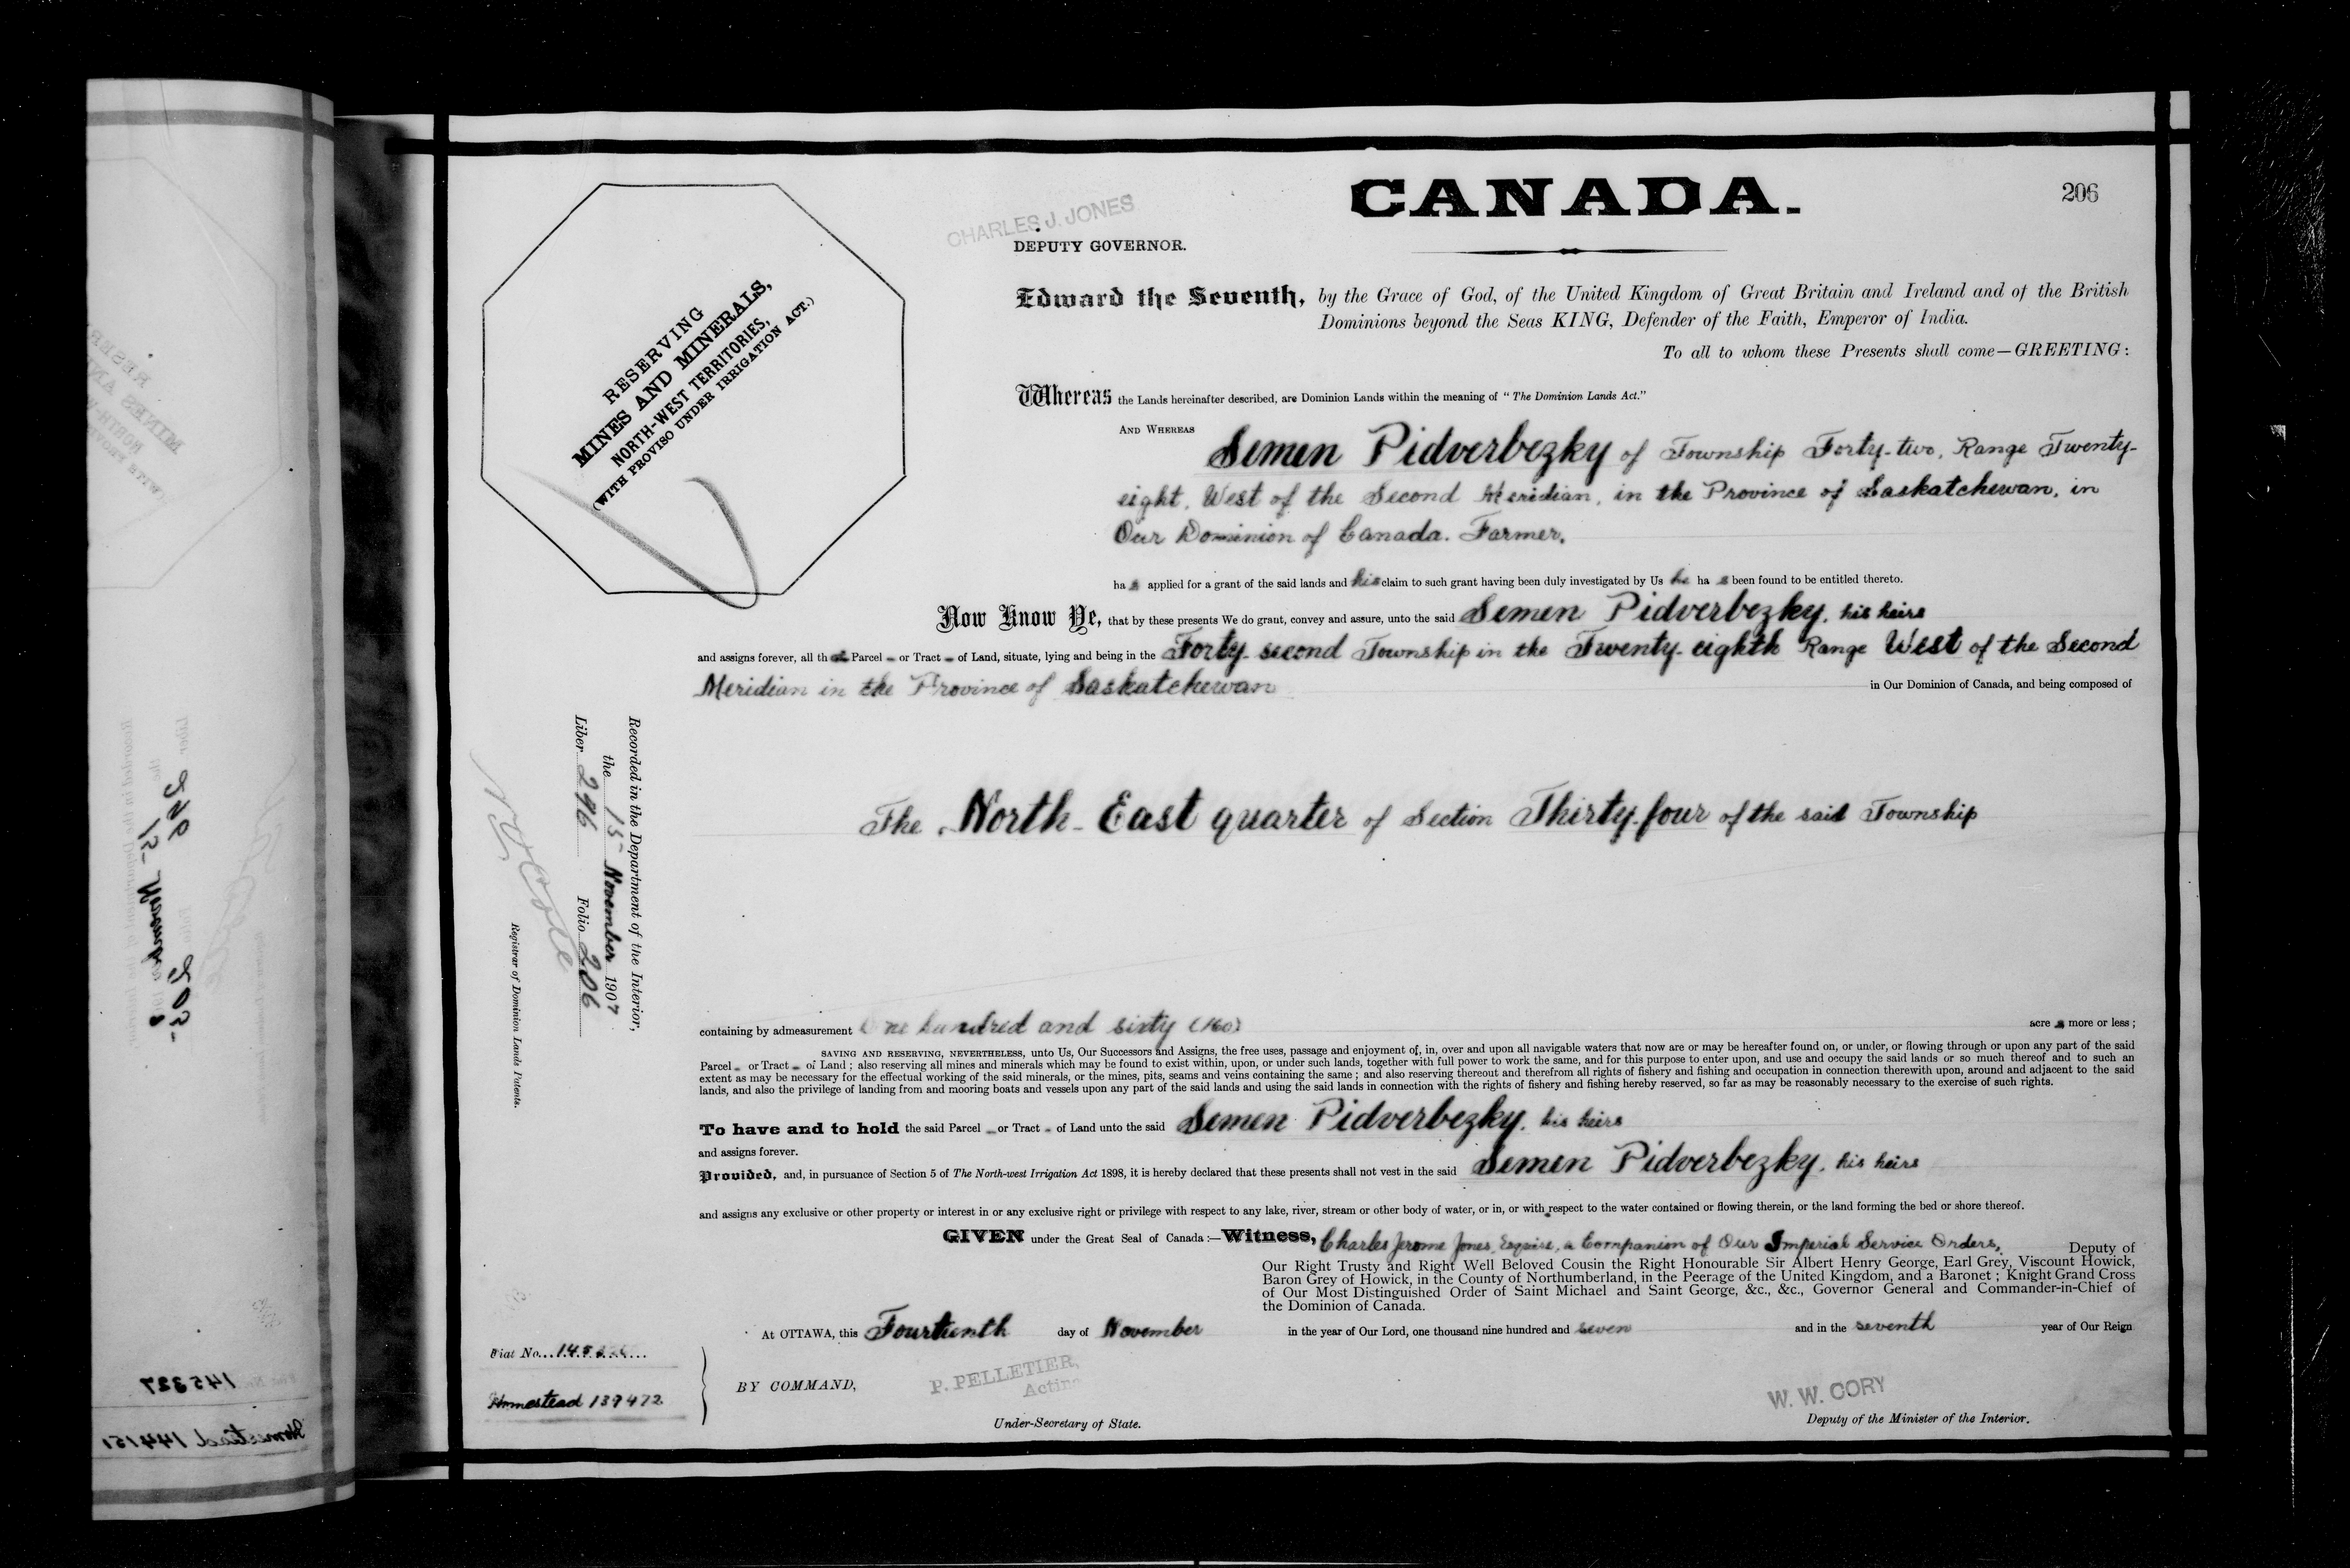 CANADA.
206
CHARLES J. JONES
DEPUTY GOVERNOR.
RESERVING
MINES AND MINERALS,
NORTH-WEST TERRITORIES,
(WITH PROVISO UNDER IRRIGATION ACT.)
Edward the Seventh, by the Grace of God, of the United Kingdom of Great Britain and Ireland and of the British
Dominions beyond the Seas KING, Defender of the Faith, Emperor of India.
To all to whom these Presents shall come—GREETING:
Whereas the Lands hereinafter described, are Dominion Lands within the meaning of "The Dominion Lands Act."
AND WHEREAS
Semen Pidverbezky of Township Forty-two, Range Twenty-
eight, West of the Second Meridian, in the Province of Saskatchewan, in
Our Dominion of Canada. Farmer,
ha s applied for a grant of the said lands and his claim to such grant having been duly investigated by Us he ha s been found to be entitled thereto.
Now Know Ye, that by these presents We do grant, convey and assure, unto the said Semen Pidverbezky, his heirs
and assigns forever, all th at Parcel - or Tract - of Land, situate, lying and being in the Forty-second Township in the Twenty-eighth Range West of the Second
Meridian in the Province of Saskatchewan in Our Dominion of Canada, and being composed of
The North-East quarter of Section Thirty-four of the said Township
Recorded in the Department of the Interior,
the 15- November 1907
Liber 296 Folio 206
Registrar of Dominion Lands Patents.
containing by admeasurement One hundred and sixty (160) acre s more or less;
SAVING AND RESERVING, NEVERTHELESS, unto Us, Our Successors and Assigns, the free uses, passage and enjoyment of, in, over and upon all navigable waters that now are or may be hereafter found on, or under, or flowing through or upon any part of the said
Parcel - or Tract - of Land; also reserving all mines and minerals which may be found to exist within, upon, or under such lands, together with full power to work the same, and for this purpose to enter upon, and use and occupy the said lands or so much thereof and to such an
extent as may be necessary for the effectual working of the said minerals, or the mines, pits, seams and veins containing the same; and also reserving thereout and therefrom all rights of fishery and fishing and occupation in connection therewith upon, around and adjacent to the said
lands, and also the privilege of landing from and mooring boats and vessels upon any part of the said lands and using the said lands in connection with the rights of fishery and fishing hereby reserved, so far as may be reasonably necessary to the exercise of such rights.
To have and to hold the said Parcel - or Tract - of Land unto the said Semen Pidverbezky, his heirs
and assigns forever.
Provided, and, in pursuance of Section 5 of The North-west Irrigation Act 1898, it is hereby declared that these presents shall not vest in the said Semen Pidverbezky, his heirs
and assigns any exclusive or other property or interest in or any exclusive right or privilege with respect to any lake, river, stream or other body of water, or in, or with respect to the water contained or flowing therein, or the land forming the bed or shore thereof.
GIVEN under the Great Seal of Canada:—Witness, Charles Jerome Jones, Esquire, a Companion of Our Imperial Service Orders, Deputy of
Our Right Trusty and Right Well Beloved Cousin the Right Honourable Sir Albert Henry George, Earl Grey, Viscount Howick,
Baron Grey of Howick, in the County of Northumberland, in the Peerage of the United Kingdom, and a Baronet; Knight Grand Cross
of Our Most Distinguished Order of Saint Michael and Saint George, &c., &c., Governor General and Commander-in-Chief of
the Dominion of Canada.
At OTTAWA, this Fourteenth day of November in the year of Our Lord, one thousand nine hundred and seven and in the seventh year of Our Reign
Fiat No.
Homestead 139472
BY COMMAND,
P. PELLETIER,
Acting
Under-Secretary of State.
W. W. CORY
Deputy of the Minister of the Interior.
145327
Homestead 144151